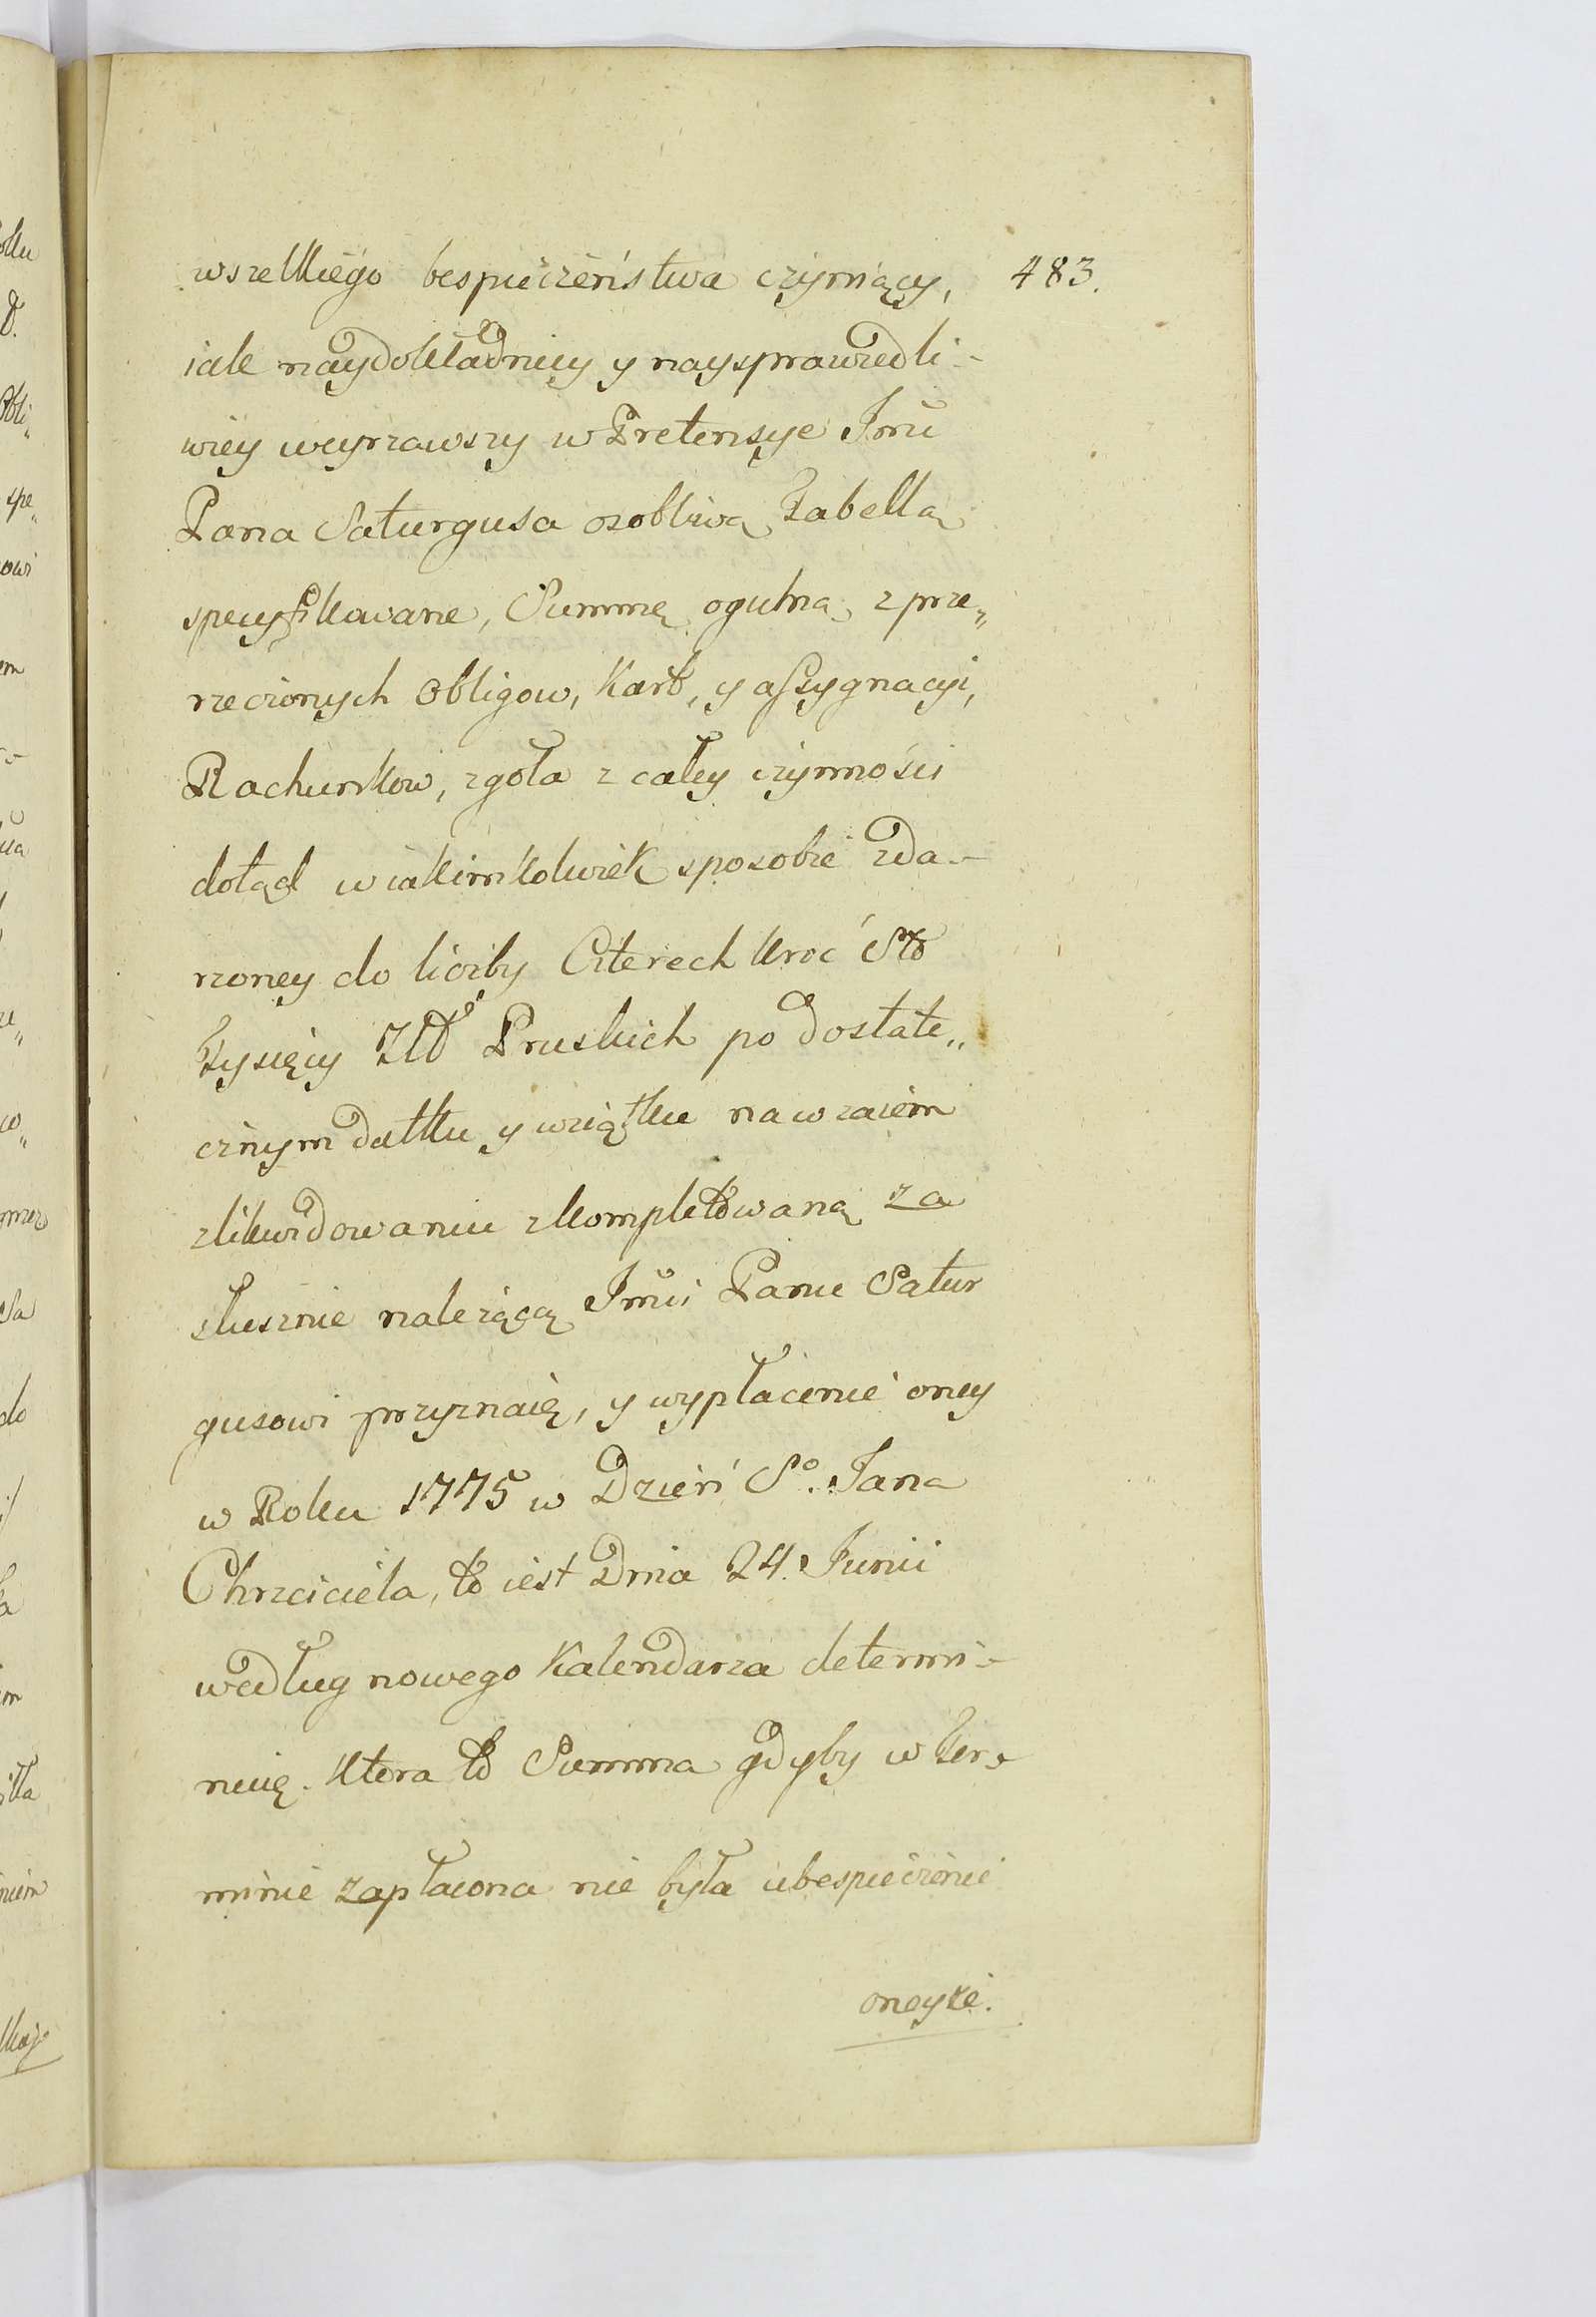 wszelkiego bespieczeństwa czyniący, 483.
iak naydokładniey y naysprawiedli-
wiey weyrzawszy w Pretensye Jmci
Pana Saturgusa osobliwą Tabellą
specyfikowane, Summę ogulną z prze„
rzeczonych Obligow, Kart, y assygnacyi,
Rachunkow, zgoła z całey czynności
dotąd w iakimkolwiek sposobie zda-
rzoney do liczby Czterech kroć Sto
Tysięcy Złt Pruskich po dostate„
cznym datku y wziątku nawzaiem
zlikwidowaniu zkompletowaną za
słusznie należącą Jmci Panu Satur
gusowi przyznaię, y wypłacenie oney
w Roku 1775 w Dzień So. Jana
Chrzciciela, to iest Dnia 24. Junii
według nowego Kalendarza determi-
nuię. Ktora to Summa gdyby w Ter-
minie zapłacona nie była ubespieczenie
oneyże.